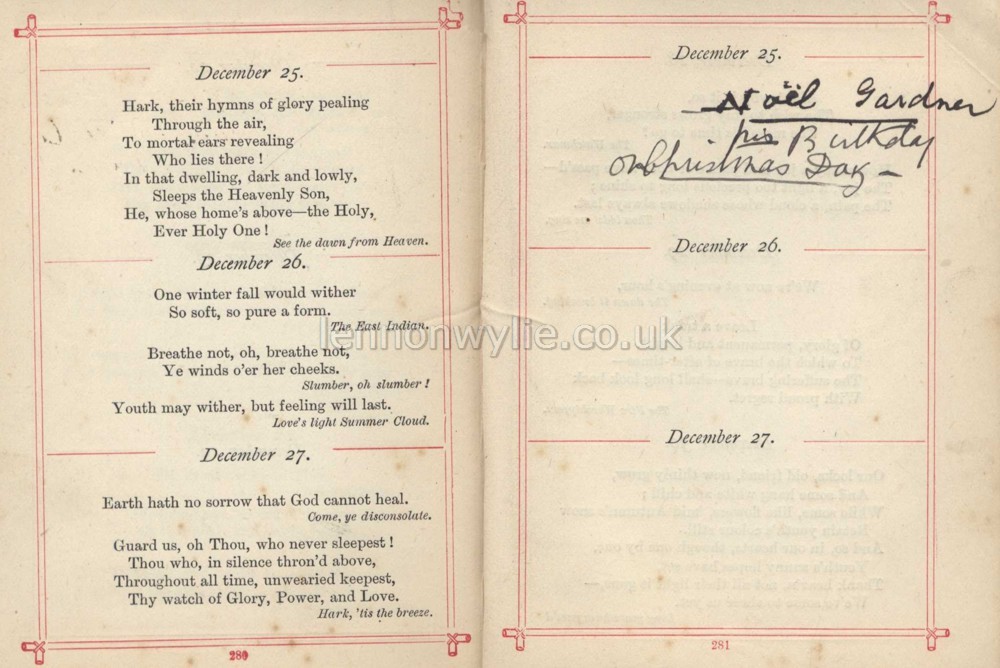 December 25.
Hark, their hymns of glory pealing
Through the air,
To mortal ears revealing
Who lies there !
In that dwelling, dark and lowly,
Sleeps the Heavenly Son,
He, whose home's above—the Holy,
Ever Holy One !
See the dawn from Heaven.
December 26.
One winter fall would wither
So soft, so pure a form.
The East Indian.
Breathe not, oh, breathe not,
Ye winds o'er her cheeks.
Slumber, oh slumber !
Youth may wither, but feeling will last.
Love's light Summer Cloud.
December 27.
Earth hath no sorrow that God cannot heal.
Come, ye disconsolate.
Guard us, oh Thou, who never sleepest !
Thou who, in silence thron'd above,
Throughout all time, unwearied keepest,
Thy watch of Glory, Power, and Love.
Hark, 'tis the breeze.
280
December 25.
Noël Gardner
his Birthday
on Christmas Day –
December 26.
December 27.
281
lennonwylie.co.uk